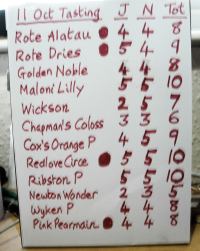 11 Oct Tasting J N Tot
Rote Alatau 4 4 8
Rote Dries 5 4 9
Golden Noble 4 4 8
Maloni Lilly 5 5 10
Wickson 2 5 7
Chapman's Coloss 3 3 6
Cox's Orange P 4 5 9
Redlove Circe 5 5 10
Ribston P 5 5 10
Newton Wonder 2 3 5
Wyken P 4 4 8
Pink Pearmain 4 4 8